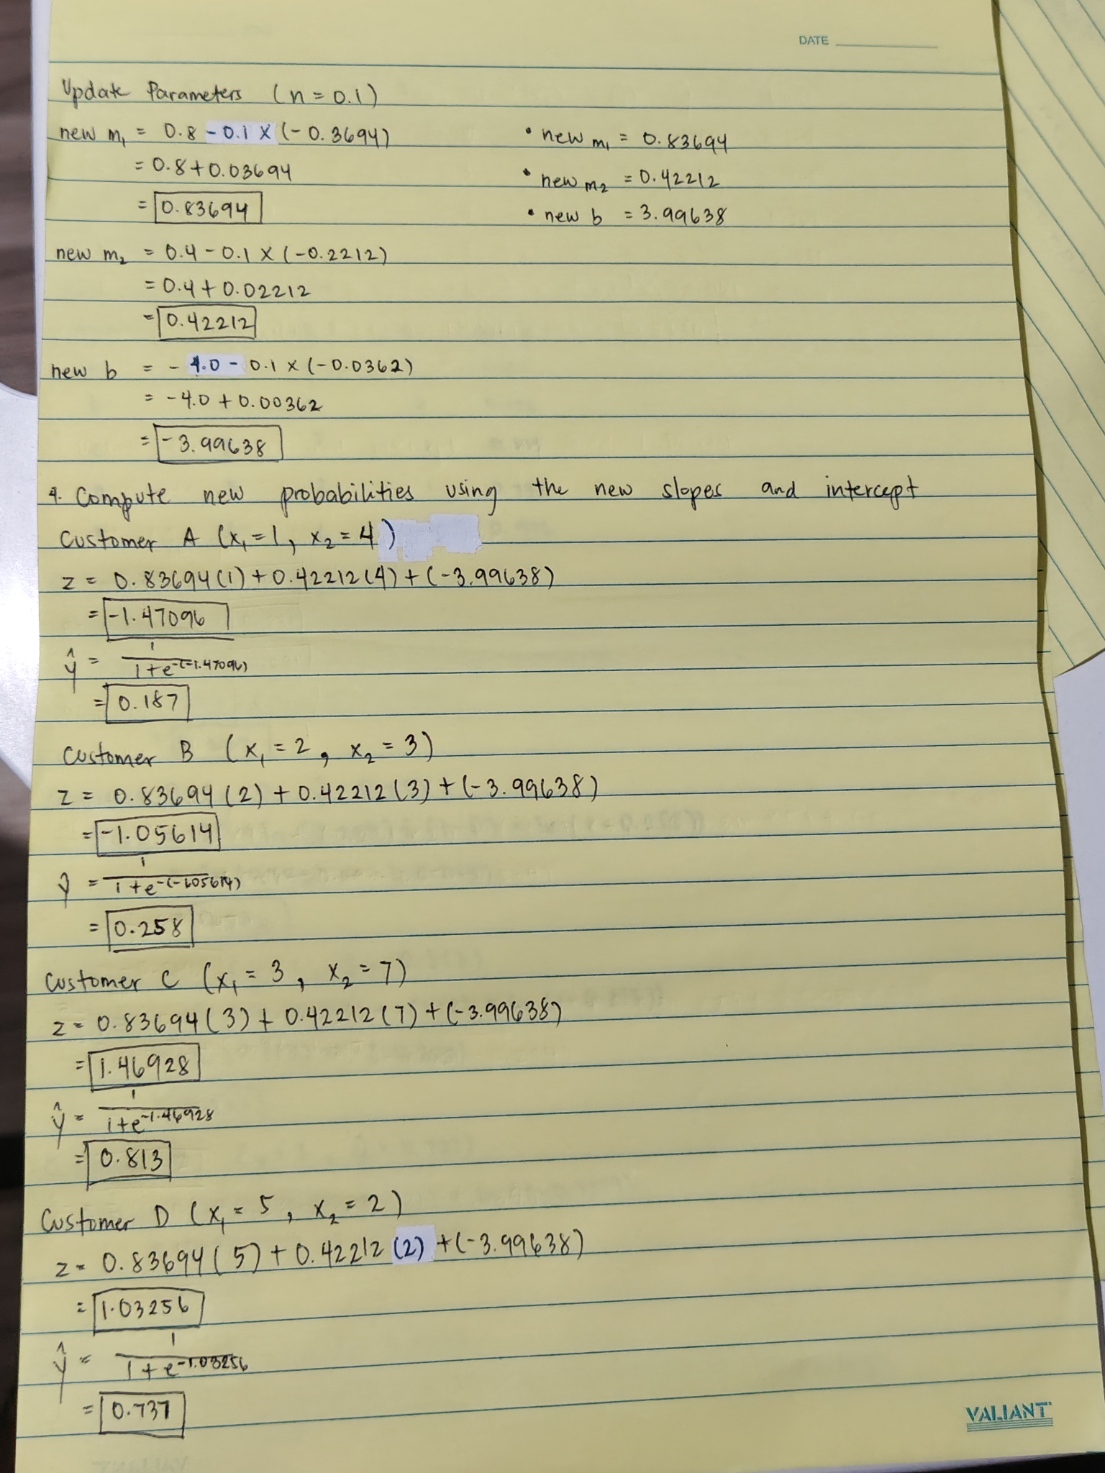 DATE
Update Parameters (n = 0.1)
new m₁ = 0.8 - 0.1 x (-0.3694)
= 0.8 + 0.03694
= 0.83694
• new m₁ = 0.83694
• new m₂ = 0.42212
• new b = 3.99638
new m₂ = 0.4 - 0.1 x (-0.2212)
= 0.4 + 0.02212
= 0.42212
new b = - 4.0 - 0.1 x (-0.0362)
= -4.0 + 0.00362
= -3.99638
4. Compute new probabilities using the new slopes and intercept
Customer A (x₁ = 1, x₂ = 4)
z = 0.83694(1) + 0.42212(4) + (-3.99638)
= -1.47096
ŷ = 1/(1+e^-(-1.47096))
= 0.187
Customer B (x₁ = 2, x₂ = 3)
z = 0.83694(2) + 0.42212(3) + (-3.99638)
= -1.05614
ŷ = 1/(1+e^-(-1.05614))
= 0.258
Customer C (x₁ = 3, x₂ = 7)
z = 0.83694(3) + 0.42212(7) + (-3.99638)
= 1.46928
ŷ = 1/(1+e^-1.46928)
= 0.813
Customer D (x₁ = 5, x₂ = 2)
z = 0.83694(5) + 0.42212(2) + (-3.99638)
= 1.03256
ŷ = 1/(1+e^-1.03256)
= 0.737
VALIANT